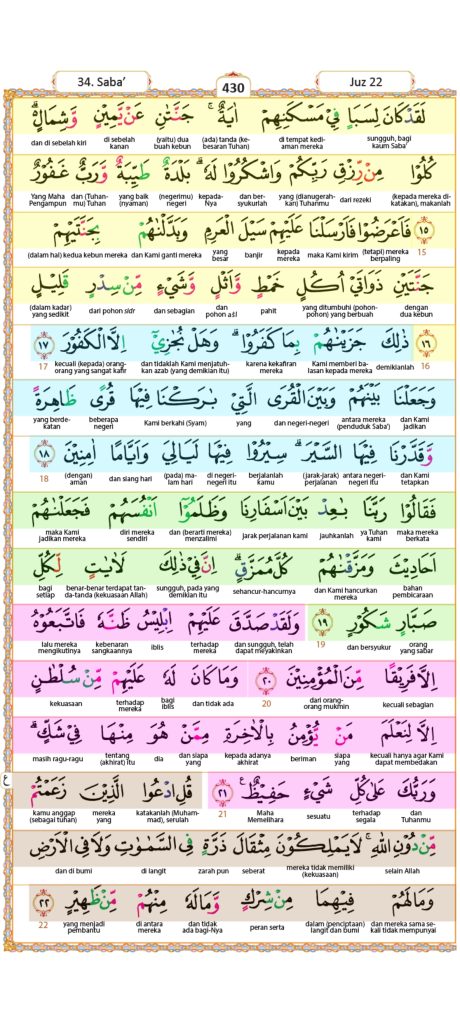 34. Saba’ 430 Juz 22
لَقَدْ كَانَ لِسَبَاٍ فِيْ مَسْكَنِهِمْ اٰيَةٌ ۚ جَنَّتٰنِ عَنْ يَّمِيْنٍ وَّشِمَالٍ ەۗ
sungguh, bagi kaum Saba’ di tempat kediaman mereka (ada) tanda (kebesaran Tuhan) (yaitu) dua buah kebun di sebelah kanan dan di sebelah kiri
كُلُوْا مِنْ رِّزْقِ رَبِّكُمْ وَاشْكُرُوْا لَهٗ ۗ بَلْدَةٌ طَيِّبَةٌ وَّرَبٌّ غَفُوْرٌ
(kepada mereka dikatakan), makanlah dari rezeki yang (dianugerahkan) Tuhanmu dan bersyukurlah kepada-Nya (negerimu) negeri yang baik (nyaman) dan (Tuhanmu) Tuhan Yang Maha Pengampun
١٥ فَاَعْرَضُوْا فَاَرْسَلْنَا عَلَيْهِمْ سَيْلَ الْعَرِمِ وَبَدَّلْنٰهُمْ بِجَنَّتَيْهِمْ
15 (tetapi) mereka berpaling maka Kami kirim kepada mereka banjir yang besar dan Kami ganti mereka (dalam hal) kedua kebun mereka
جَنَّتَيْنِ ذَوَاتَيْ اُكُلٍ خَمْطٍ وَّاَثْلٍ وَّشَيْءٍ مِّنْ سِدْرٍ قَلِيْلٍ
dengan dua kebun yang ditumbuhi (pohon-pohon) yang berbuah pahit dan pohon aṡl dan sebagian dari pohon sidr (dalam kadar) yang sedikit
١٦ ذٰلِكَ جَزَيْنٰهُمْ بِمَا كَفَرُوْا ۗ وَهَلْ نُجٰزِيْٓ اِلَّا الْكَفُوْرَ ١٧
16 demikianlah Kami memberi balasan kepada mereka karena kekafiran mereka dan tidaklah Kami menjatuhkan azab (yang demikian itu) kecuali (kepada) orang-orang yang sangat kafir 17
وَجَعَلْنَا بَيْنَهُمْ وَبَيْنَ الْقُرَى الَّتِيْ بٰرَكْنَا فِيْهَا قُرًى ظَاهِرَةً
dan Kami jadikan antara mereka (penduduk Saba’) dan negeri-negeri yang Kami berkahi (Syam) beberapa negeri yang berdekatan
وَّقَدَّرْنَا فِيْهَا السَّيْرَ ۗ سِيْرُوْا فِيْهَا لَيَالِيَ وَاَيَّامًا اٰمِنِيْنَ ١٨
dan Kami tetapkan antara negeri-negeri itu (jarak-jarak) perjalanan berjalanlah kamu di negeri-negeri itu (pada) malam hari dan siang hari (dengan) aman 18
فَقَالُوْا رَبَّنَا بٰعِدْ بَيْنَ اَسْفَارِنَا وَظَلَمُوْٓا اَنْفُسَهُمْ فَجَعَلْنٰهُمْ
maka mereka berkata ya Tuhan kami jauhkanlah jarak perjalanan kami dan (berarti mereka) menzalimi diri mereka sendiri maka Kami jadikan mereka
اَحَادِيْثَ وَمَزَّقْنٰهُمْ كُلَّ مُمَزَّقٍ ۗ اِنَّ فِيْ ذٰلِكَ لَاٰيٰتٍ لِّكُلِّ
bahan pembicaraan dan Kami hancurkan mereka sehancur-hancurnya sungguh, pada yang demikian itu benar-benar terdapat tanda-tanda (kekuasaan Allah) bagi setiap
صَبَّارٍ شَكُوْرٍ ١٩ وَلَقَدْ صَدَّقَ عَلَيْهِمْ اِبْلِيْسُ ظَنَّهٗ فَاتَّبَعُوْهُ
orang yang sabar dan bersyukur 19 dan sungguh, telah dapat meyakinkan terhadap mereka iblis kebenaran sangkaannya lalu mereka mengikutinya
اِلَّا فَرِيْقًا مِّنَ الْمُؤْمِنِيْنَ ٢٠ وَمَا كَانَ لَهٗ عَلَيْهِمْ مِّنْ سُلْطٰنٍ
kecuali sebagian dari orang-orang mukmin 20 dan tidak ada bagi iblis terhadap mereka kekuasaan
اِلَّا لِنَعْلَمَ مَنْ يُّؤْمِنُ بِالْاٰخِرَةِ مِمَّنْ هُوَ مِنْهَا فِيْ شَكٍّ ۗ
kecuali hanya agar Kami dapat membedakan siapa yang beriman kepada adanya akhirat dan siapa yang dia tentang (akhirat) itu masih ragu-ragu
وَرَبُّكَ عَلٰى كُلِّ شَيْءٍ حَفِيْظٌ ࣖ ٢١ قُلِ ادْعُوا الَّذِيْنَ زَعَمْتُمْ ع
dan Tuhanmu terhadap segala sesuatu Maha Memelihara 21 katakanlah (Muhammad), serulah mereka yang kamu anggap (sebagai tuhan)
مِّنْ دُوْنِ اللّٰهِ ۚ لَا يَمْلِكُوْنَ مِثْقَالَ ذَرَّةٍ فِى السَّمٰوٰتِ وَلَا فِى الْاَرْضِ
selain Allah mereka tidak memiliki (kekuasaan) seberat zarah pun di langit dan di bumi
وَمَا لَهُمْ فِيْهِمَا مِنْ شِرْكٍ وَّمَا لَهٗ مِنْهُمْ مِّنْ ظَهِيْرٍ ٢٢
dan mereka sama sekali tidak mempunyai dalam (penciptaan) langit dan bumi peran serta dan tidak ada bagi-Nya di antara mereka yang menjadi pembantu 22